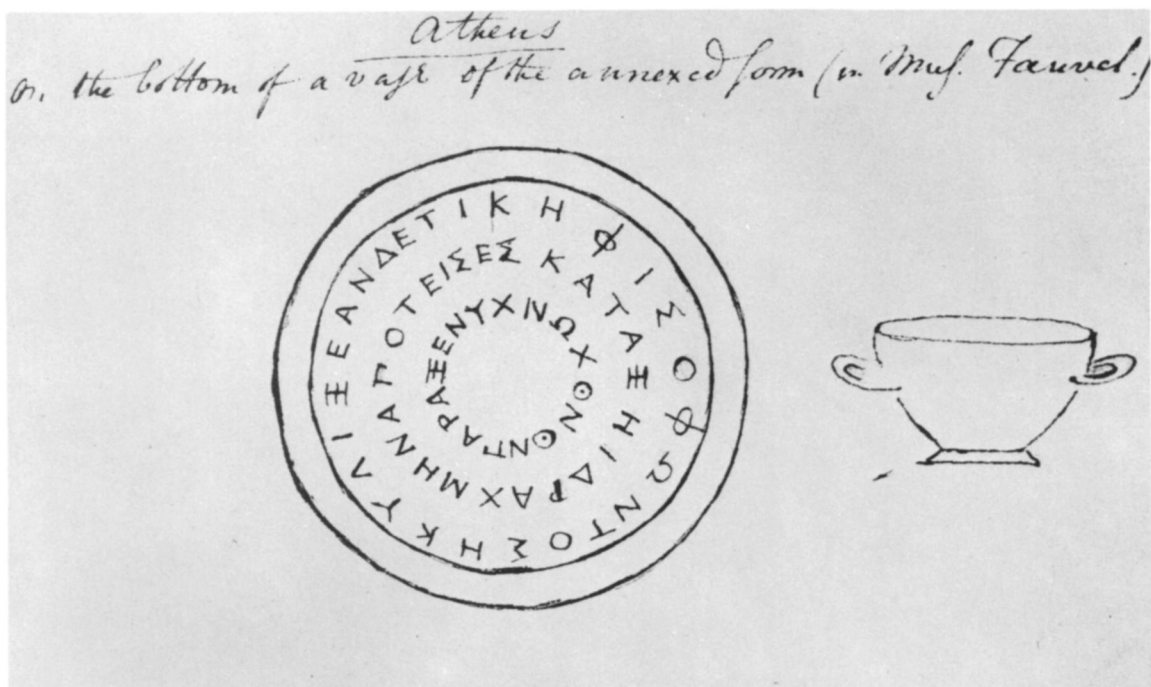 Athens
on the bottom of a vase of the annexed form (in Mus. Fauvel.)
ΚΗΦΙΣΟΦΩΝΤΟΣΗΚΥΛΙΞΕΑΝΔΕΤΙ
ΚΑΤΑΞΗΙΔΡΑΧΜΗΝΑΠΟΤΕΙΣΕΣ
ΩΧΘΝΘΝΠΑΡΑΞΕΝΥΧΙΝ